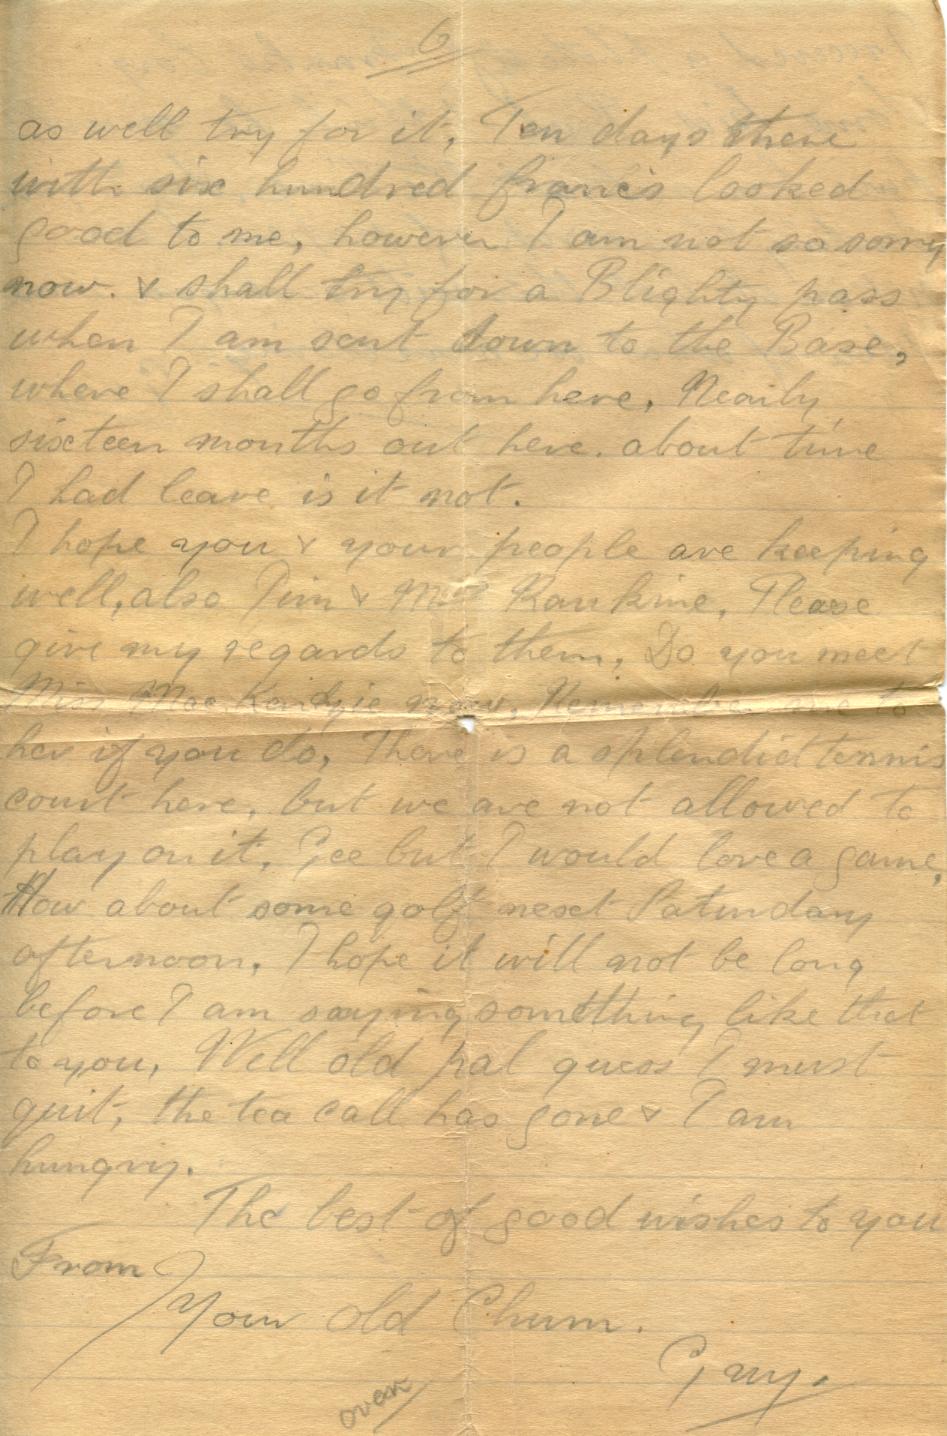 6
as well try for it, Ten days there
with six hundred francs looked
good to me, however I am not so sorry
now. & shall try for a Blighty pass
when I am sent down to the Base,
where I shall go from here, Nearly
sixteen months out here. about time
I had leave is it not.
I hope you & your people are keeping
well, also Jim & Mrs Rankine, Please
give my regards to them, Do you meet
Miss now, Remember me to
her if you do, There is a splendid tennis
court here, but we are not allowed to
play on it, Gee but I would love a game,
How about some golf next Saturday
afternoon, I hope it will not be long
before I am saying something like that
to you, Well old pal guess I must
quit, the tea call has gone & I am
hungry.
The best of good wishes to you
From
Your old Chum.
Guy.
over